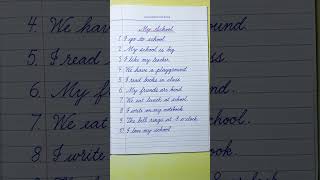 My School
1. I go to school.
2. My school is big.
3. I like my teacher.
4. We have a playground.
5. I read books in class.
6. My friends are kind.
7. We eat lunch at school.
8. I write on my notebook.
9. The bell rings at 8 o'clock.
10. I love my school.
4. We have
ound.
5. I read
6. My
7. We eat
8. I write